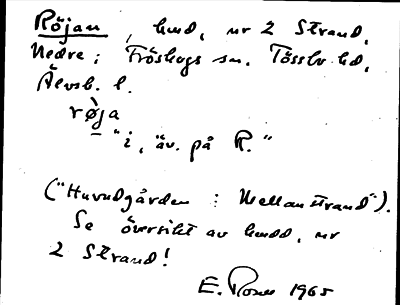 Röjan, hmd, nr 2 Strand,
Nedre; Fröskogs sn. Tössbo hd,
Älvsb. l.
rø̀ja
— "i, äv. på R."
("Huvudgården : Mellanstrand").
Se översikt av hmdd, nr
2 Strand!
E. Rosen 1965